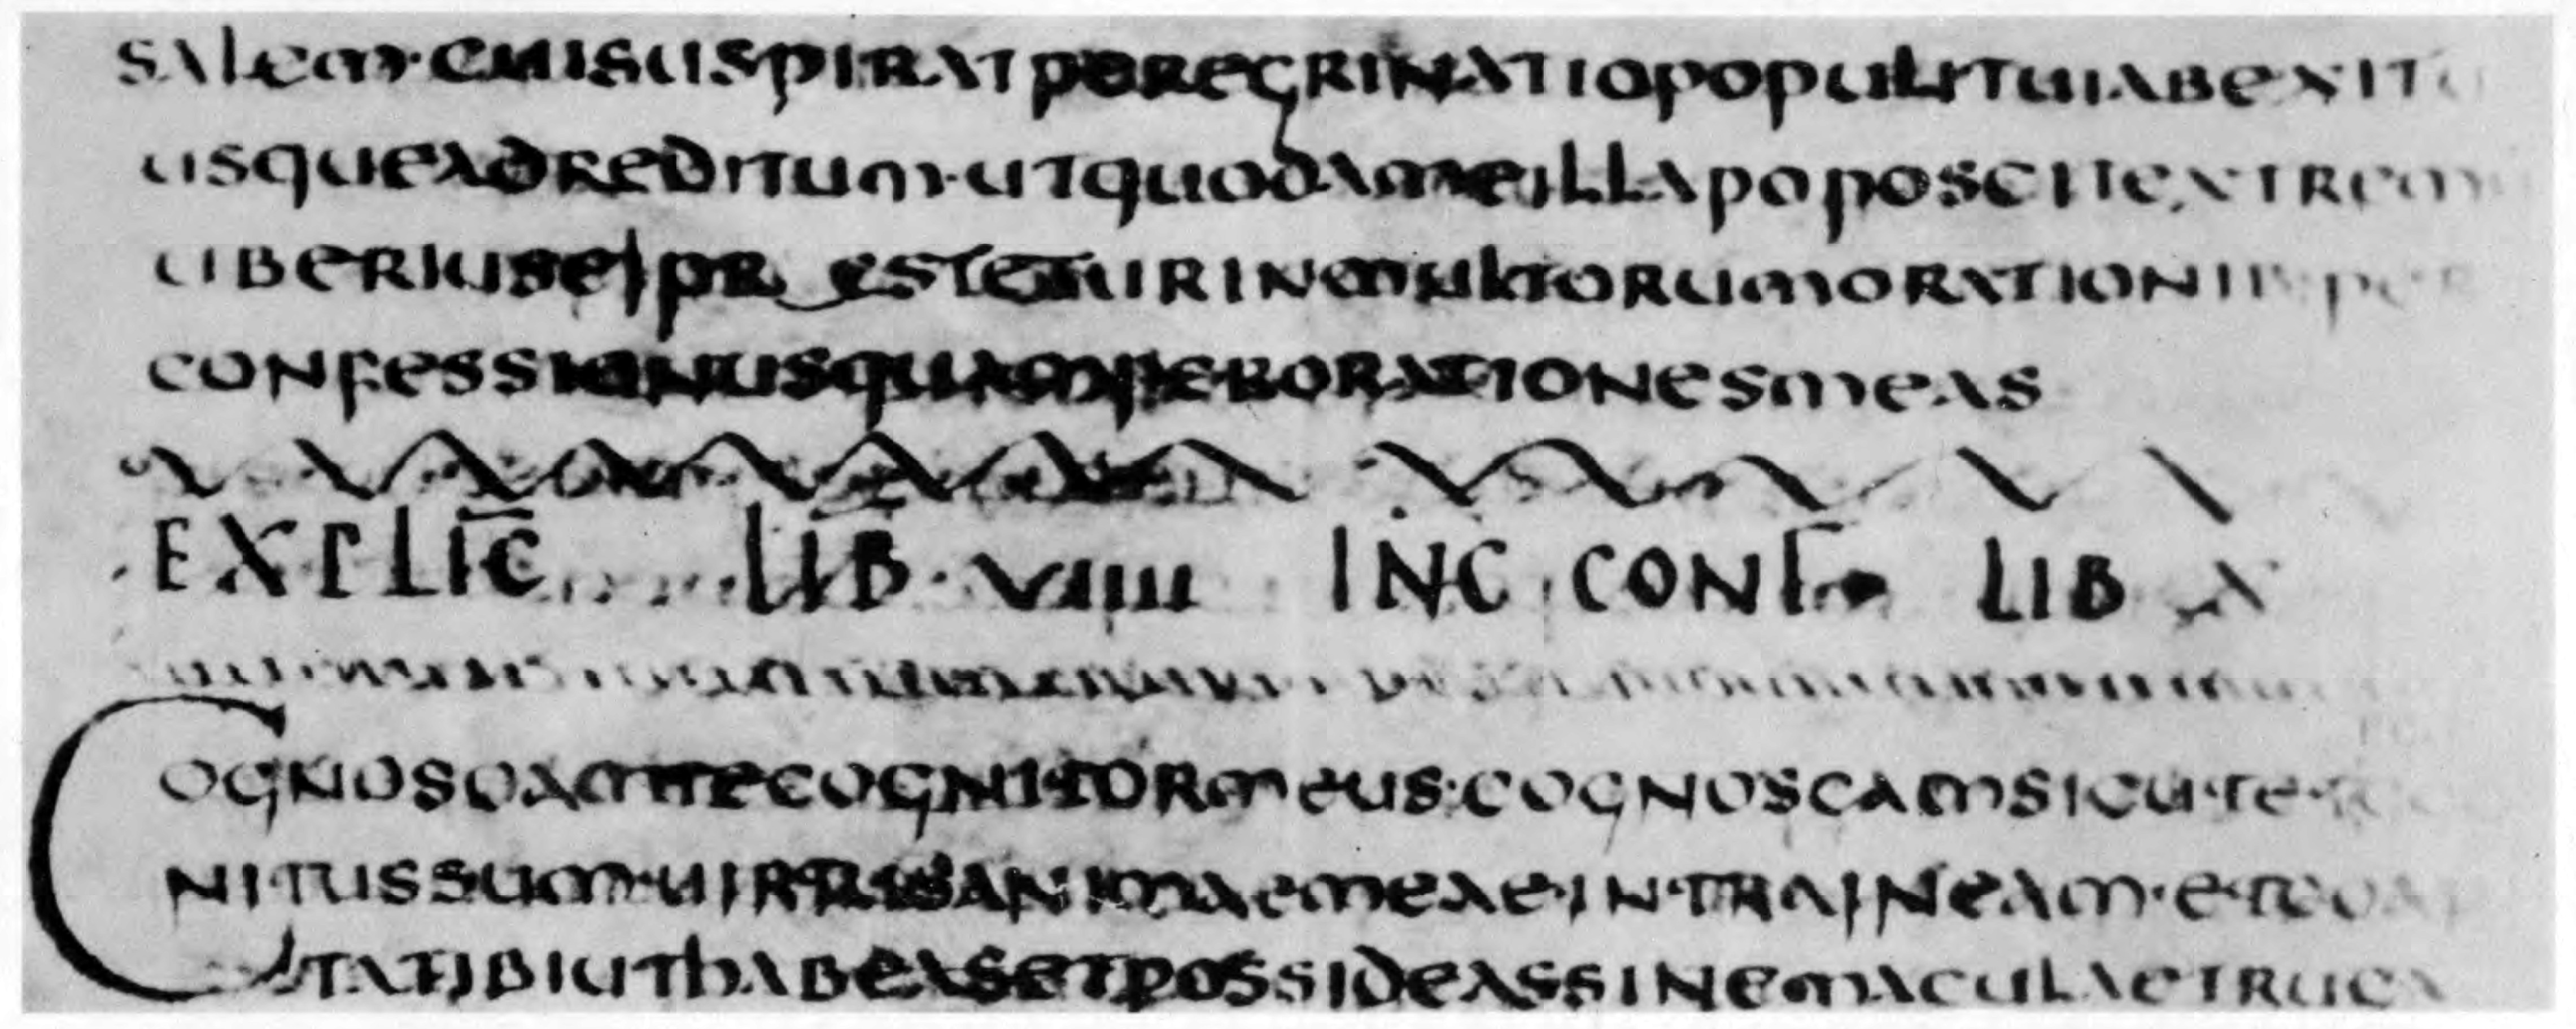 SALEM·CUISUSPIRATPEREGRINATIOPOPULITUIABEXITU
USQUEADREDITUM·UTQUODAMEILLAPOPOSCITEXTREMU
UBERIUSEIPRESTETURINMULTORUMORATIONIBPER
CONFESSIONESQUAMPERORATIONESMEAS
EXPLIC LIB·VIIII INC CONF LIB X
COGNOSCAMTECOGNITORMEUS·COGNOSCAMSICUTETCO
NITUSSUM·UIRTUSANIMAEMEAE·INTRAINEAM·ETCOAP
TATIBIUTHABEASETPOSSIDEASSINEMACULAETRUGA